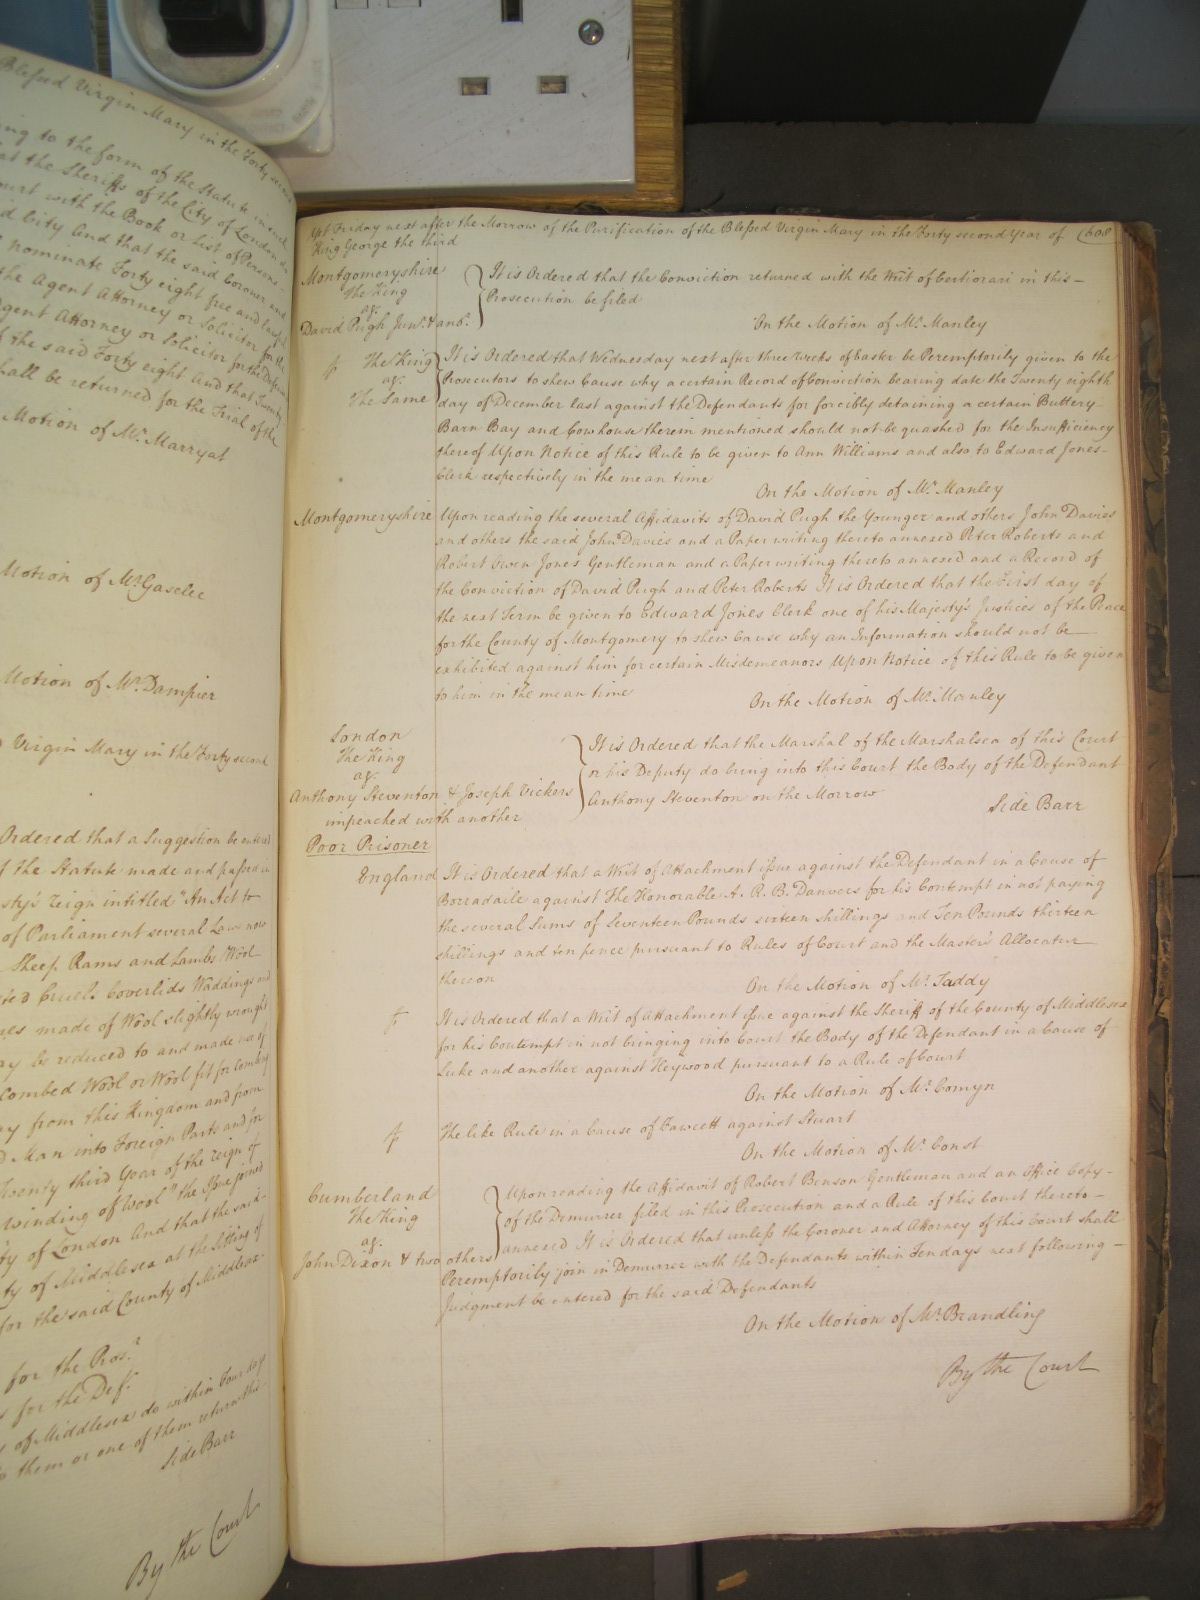 Blessed Virgin Mary in the Forty second
ing to the form of the Statute in such
at the Sheriffs of the City of London do
ourt with the Book or List of Persons
id City And that the said Coroner and
nominate Forty eight free and lawful
the Agent Attorney or Solicitor for the
Agent Attorney or Solicitor for the Defendant
f the said Forty eight And that Twenty
hall be returned for the Trial of the
Motion of Mr. Marryat
Motion of Mr. Gaselee
Motion of Mr. Dampier
Virgin Mary in the Forty second
Ordered that a Suggestion be entered
f the Statute made and passed in
sty's reign intitled "An Act to
of Parliament several Laws now
Sheep Rams and Lambs Wool
Cruel. Coverlids Waddings and
made of Wool slightly wrought
ay be reduced to and made use of
Combed Wool or Wool fit for Combing
y from this Kingdom and from
Man into Foreign Parts and for
Twenty third Year of the reign of
winding of Wool" the Issue joined
ty of London And that the said
ty of Middlesex at the Sitting of
for the said County of Middlesex
for the Pros.r
for the Def.t
of Middlesex do within Four days
them or one of them return this
Side Barr
By the Court
Yet Friday next after the Morrow of the Purification of the Blessed Virgin Mary in the Forty second Year of 608
King George the third
Montgomeryshire
The King
ag.t
David Pugh Jun.r & anr.
It is Ordered that the Conviction returned with the Writ of Certiorari in this
Prosecution be filed
On the Motion of Mr. Manley
The King
ag.t
The Same
It is Ordered that Wednesday next after three Weeks of Easter be Peremptorily given to the
Prosecutors to shew Cause why a certain Record of Conviction bearing date the Twenty eighth
day of December last against the Defendants for forcibly detaining a certain Buttery
Barn Bay and Cowhouse therein mentioned should not be quashed for the Insufficiency
thereof Upon Notice of this Rule to be given to Ann Williams and also to Edward Jones
Clerk respectively in the mean time
On the Motion of Mr. Manley
Montgomeryshire
Upon reading the several Affidavits of David Pugh the Younger and others John Davies
and others the said John Davies and a Paper writing thereto annexed Peter Roberts and
Robert Owen Jones Gentleman and a Paper writing thereto annexed and a Record of
the Conviction of David Pugh and Peter Roberts It is Ordered that the First day of
the next Term be given to Edward Jones Clerk one of his Majesty's Justices of the Peace
for the County of Montgomery to shew Cause why an Information should not be
exhibited against him for certain Misdemeanors Upon Notice of this Rule to be given
to him in the mean time
On the Motion of Mr. Manley
London
The King
ag.t
Anthony Steventon & Joseph Vickers
impeached with another
Poor Prisoner
It is Ordered that the Marshal of the Marshalsea of this Court
or his Deputy do bring into this Court the Body of the Defendant
Anthony Steventon on the Morrow
Side Barr
England
It is Ordered that a Writ of Attachment issue against the Defendant in a Cause of
Borradaile against The Honorable A. R. B. Danvers for his Contempt in not paying
the several Sums of Seventeen Pounds sixteen shillings and Ten Pounds thirteen
shillings and ten pence pursuant to Rules of Court and the Master's Allocatur
thereon
On the Motion of Mr. Taddy
It is Ordered that a Writ of Attachment issue against the Sheriff of the County of Middlesex
for his Contempt in not bringing into Court the Body of the Defendant in a Cause of
Luke and another against Heywood pursuant to a Rule of Court
On the Motion of Mr. Comyn
The like Rule in a Cause of Fawcett against Stuart
On the Motion of Mr. Const
Cumberland
The King
ag.t
John Dixon & two others
Upon reading the Affidavit of Robert Benson Gentleman and an Office Copy
of the Demurrer filed in this Prosecution and a Rule of this Court thereto
annexed It is Ordered that unless the Coroner and Attorney of this Court shall
Peremptorily join in Demurrer with the Defendants within Ten days next following
Judgment be entered for the said Defendants
On the Motion of Mr. Brandling
By the Court